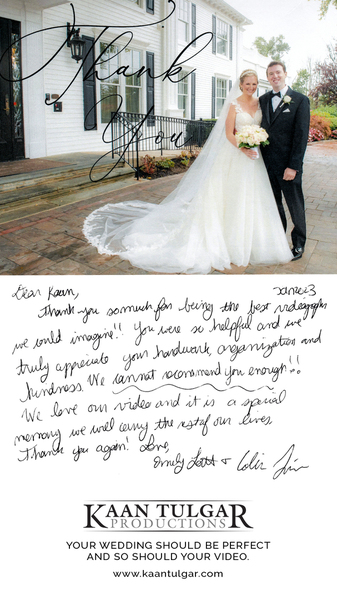 Thank
You
Dear Kaan,
Thank you so much for being the best videographer
we could imagine!! You were so helpful and we
truly appreciate your hardwork, organization and
kindness. We cannot recommend you enough!!
We love our video and it is a special
memory we will carry the rest of our lives.
Thank you again! Love,
Emily &
KAAN TULGAR
PRODUCTIONS
YOUR WEDDING SHOULD BE PERFECT
AND SO SHOULD YOUR VIDEO.
www.kaantulgar.com